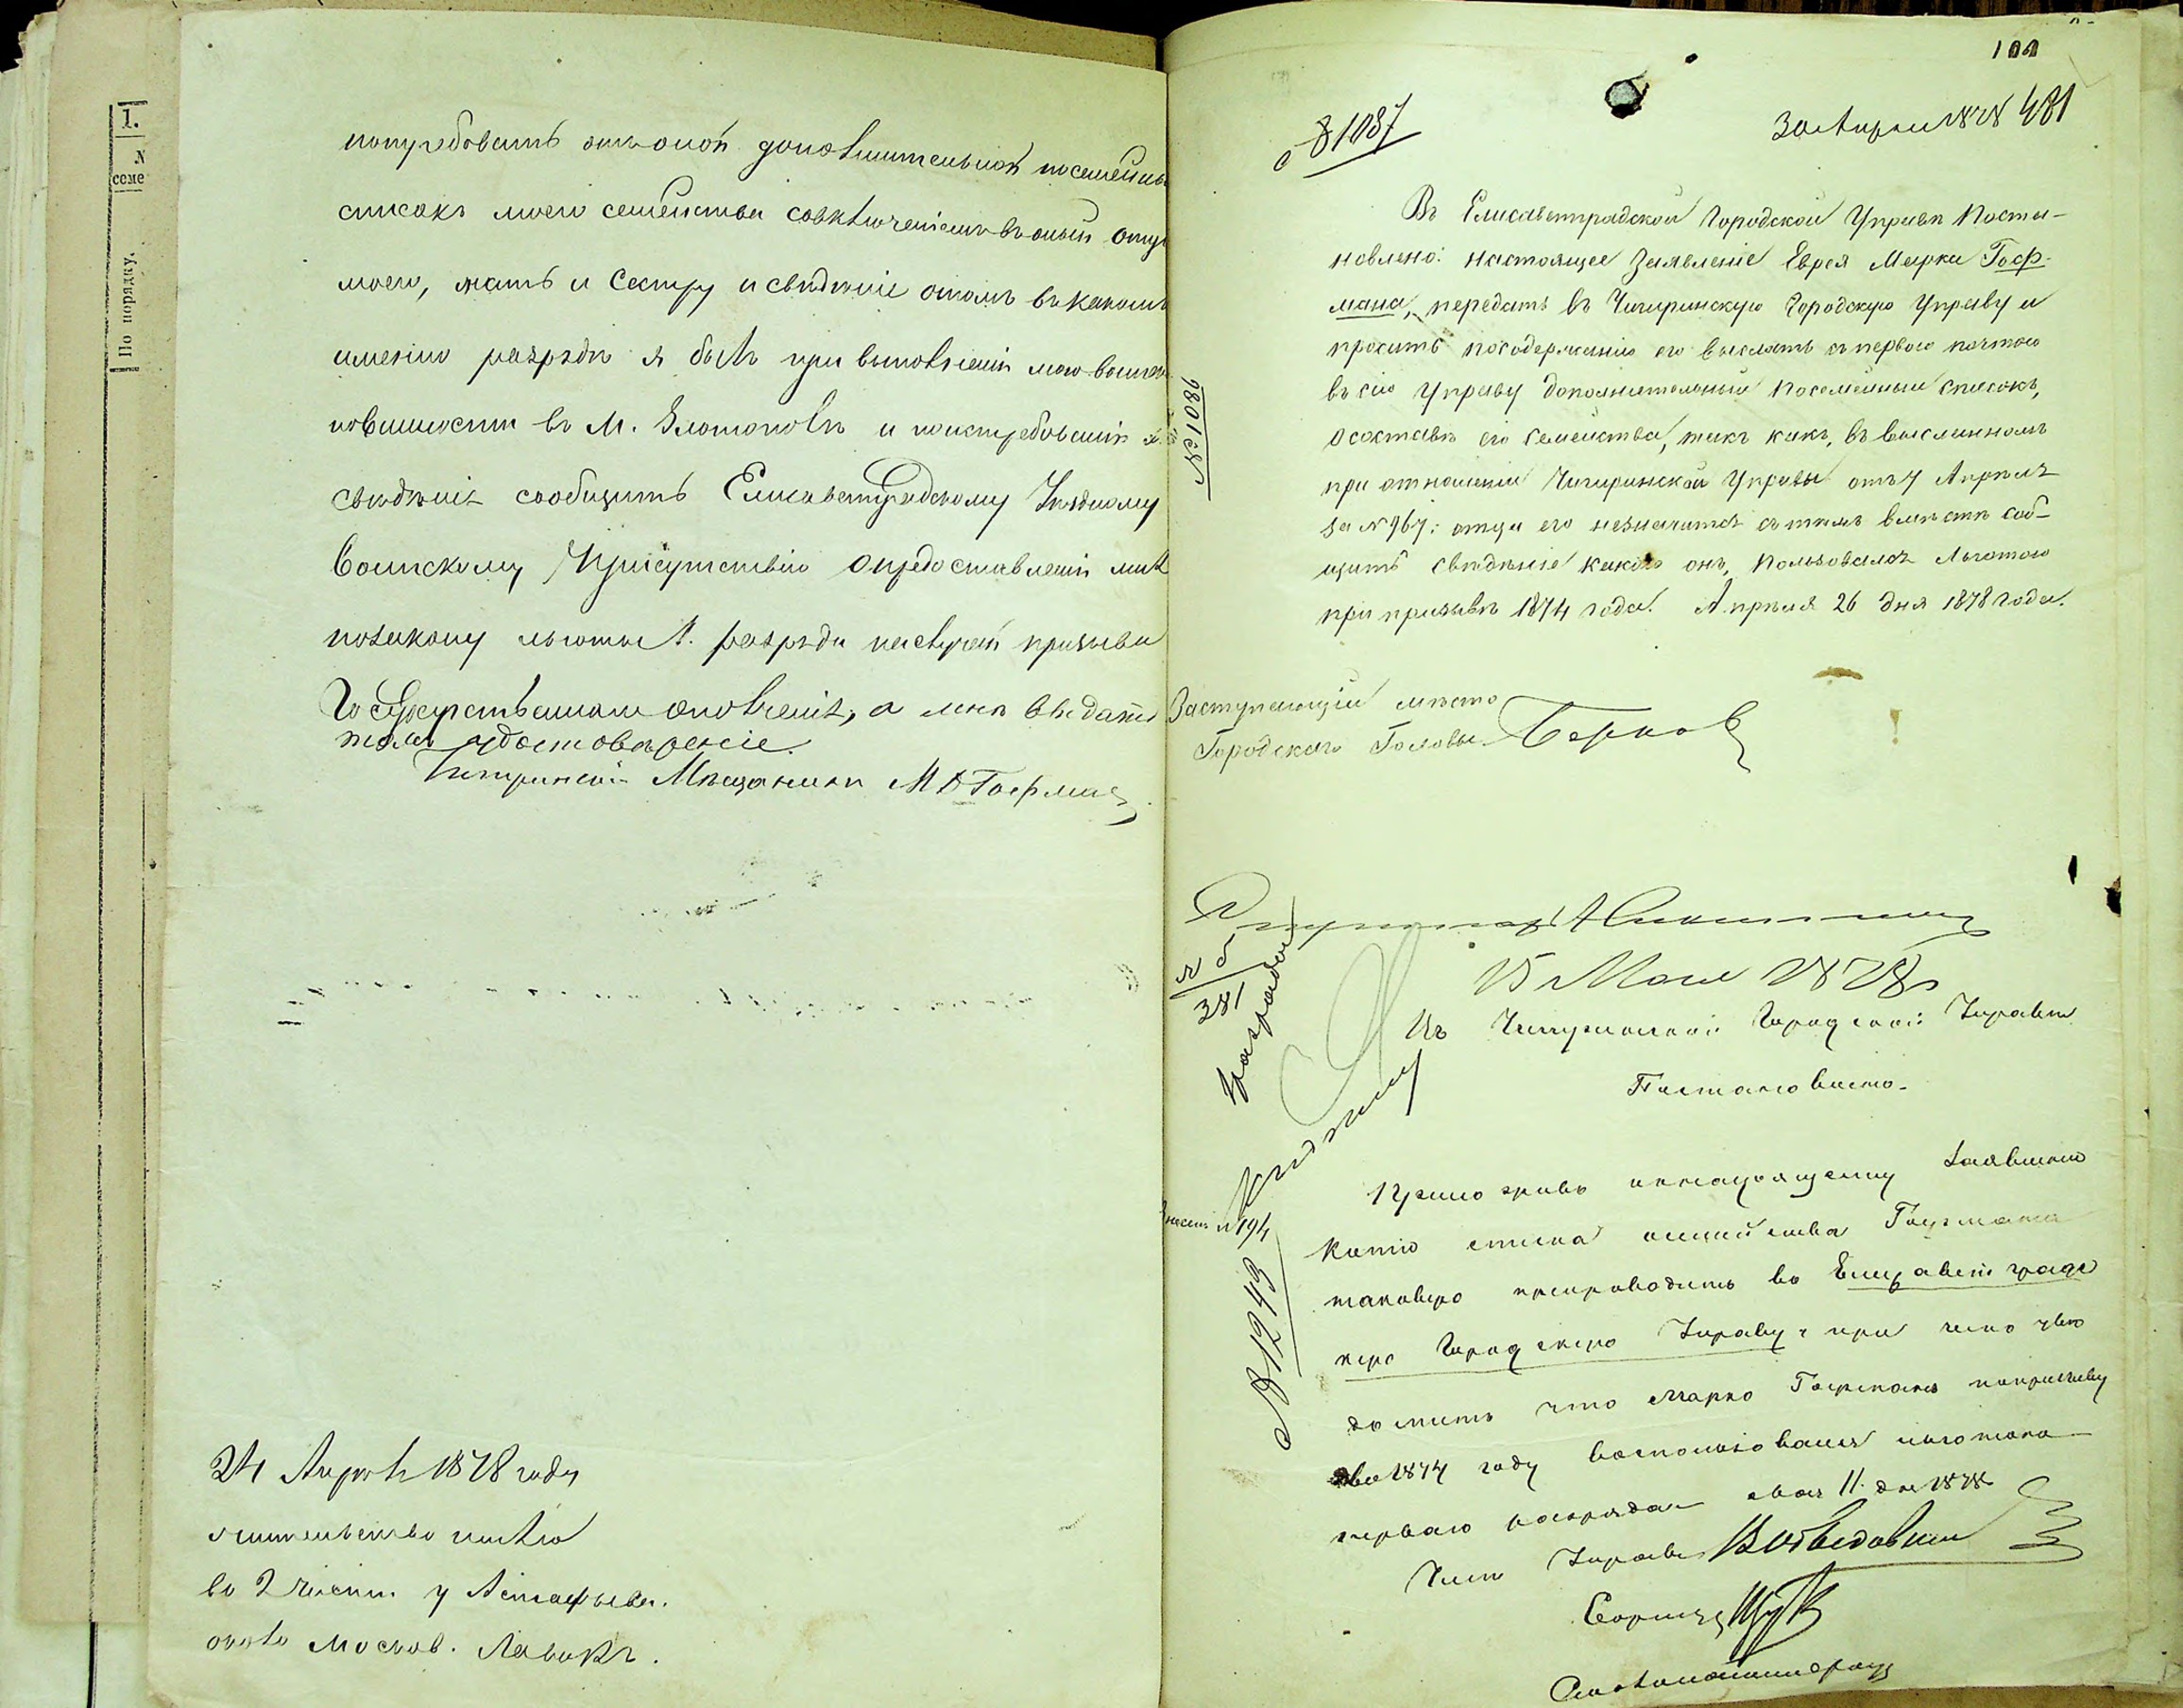 I.
N
семе
По порядку.
потребовать отъ оной дополнительной посемейный
списокъ моего семейства совключеніемъ въ оный отца
моего, мать и сестру и сведеніе отомъ въ какомъ
именно разряде я былъ при выполненіи мною воинск
повинности въ М. Златополе и поистребованіи
сведенія сообщить Елисаветградскому Уездному
Воинскому Присутствію опредоставленіи мне
позакону льготы 1. разряда
Государственнаго ополченія, а мне выдать
томъ удостовереніе.
Чигиринскій Мещанинъ М Гофманъ
24 Апреля 1878 году
жительство имею
во 2 части у Астафьева.
около Москов. Лавокъ.
101
№ 1087
30 Апреля 1878 481
Въ Елисаветградской Городской Управе Поста-
новлено: настоящее Заявленіе Еврея Марка Гоф-
мана, передать въ Чигиринскую Городскую Управу и
просить посодержанію его выслать съ первою почтою
въ сію Управу дополнительный посемейный списокъ,
о составе его семейства, такъ какъ, въ высланномъ
при отношеніи Чигиринской Управы отъ 7 Апреля
за № 967: отца его незначится съ темъ вместе сооб-
щить сведеніе какою онъ, пользовался льготою
при призыве 1874 года. Апреля 26 дня 1878 года.
№ 1086
Заступающій место
Городскаго Головы
Секретарь
15 Мая 1878
381
Въ Чигиринской Городской Управе
Постановлено.
№ 194
№ 1243
настоящему заявленію
копію списка семейства Гофмана
таковую препроводить во Елизаветградс
кую Городскую Управу и при чемъ уве
домить что Марко Гофманъ попризыву
1874 году воспользовался льготою
перваго разряда мая 11 дня 1878
Член Управы